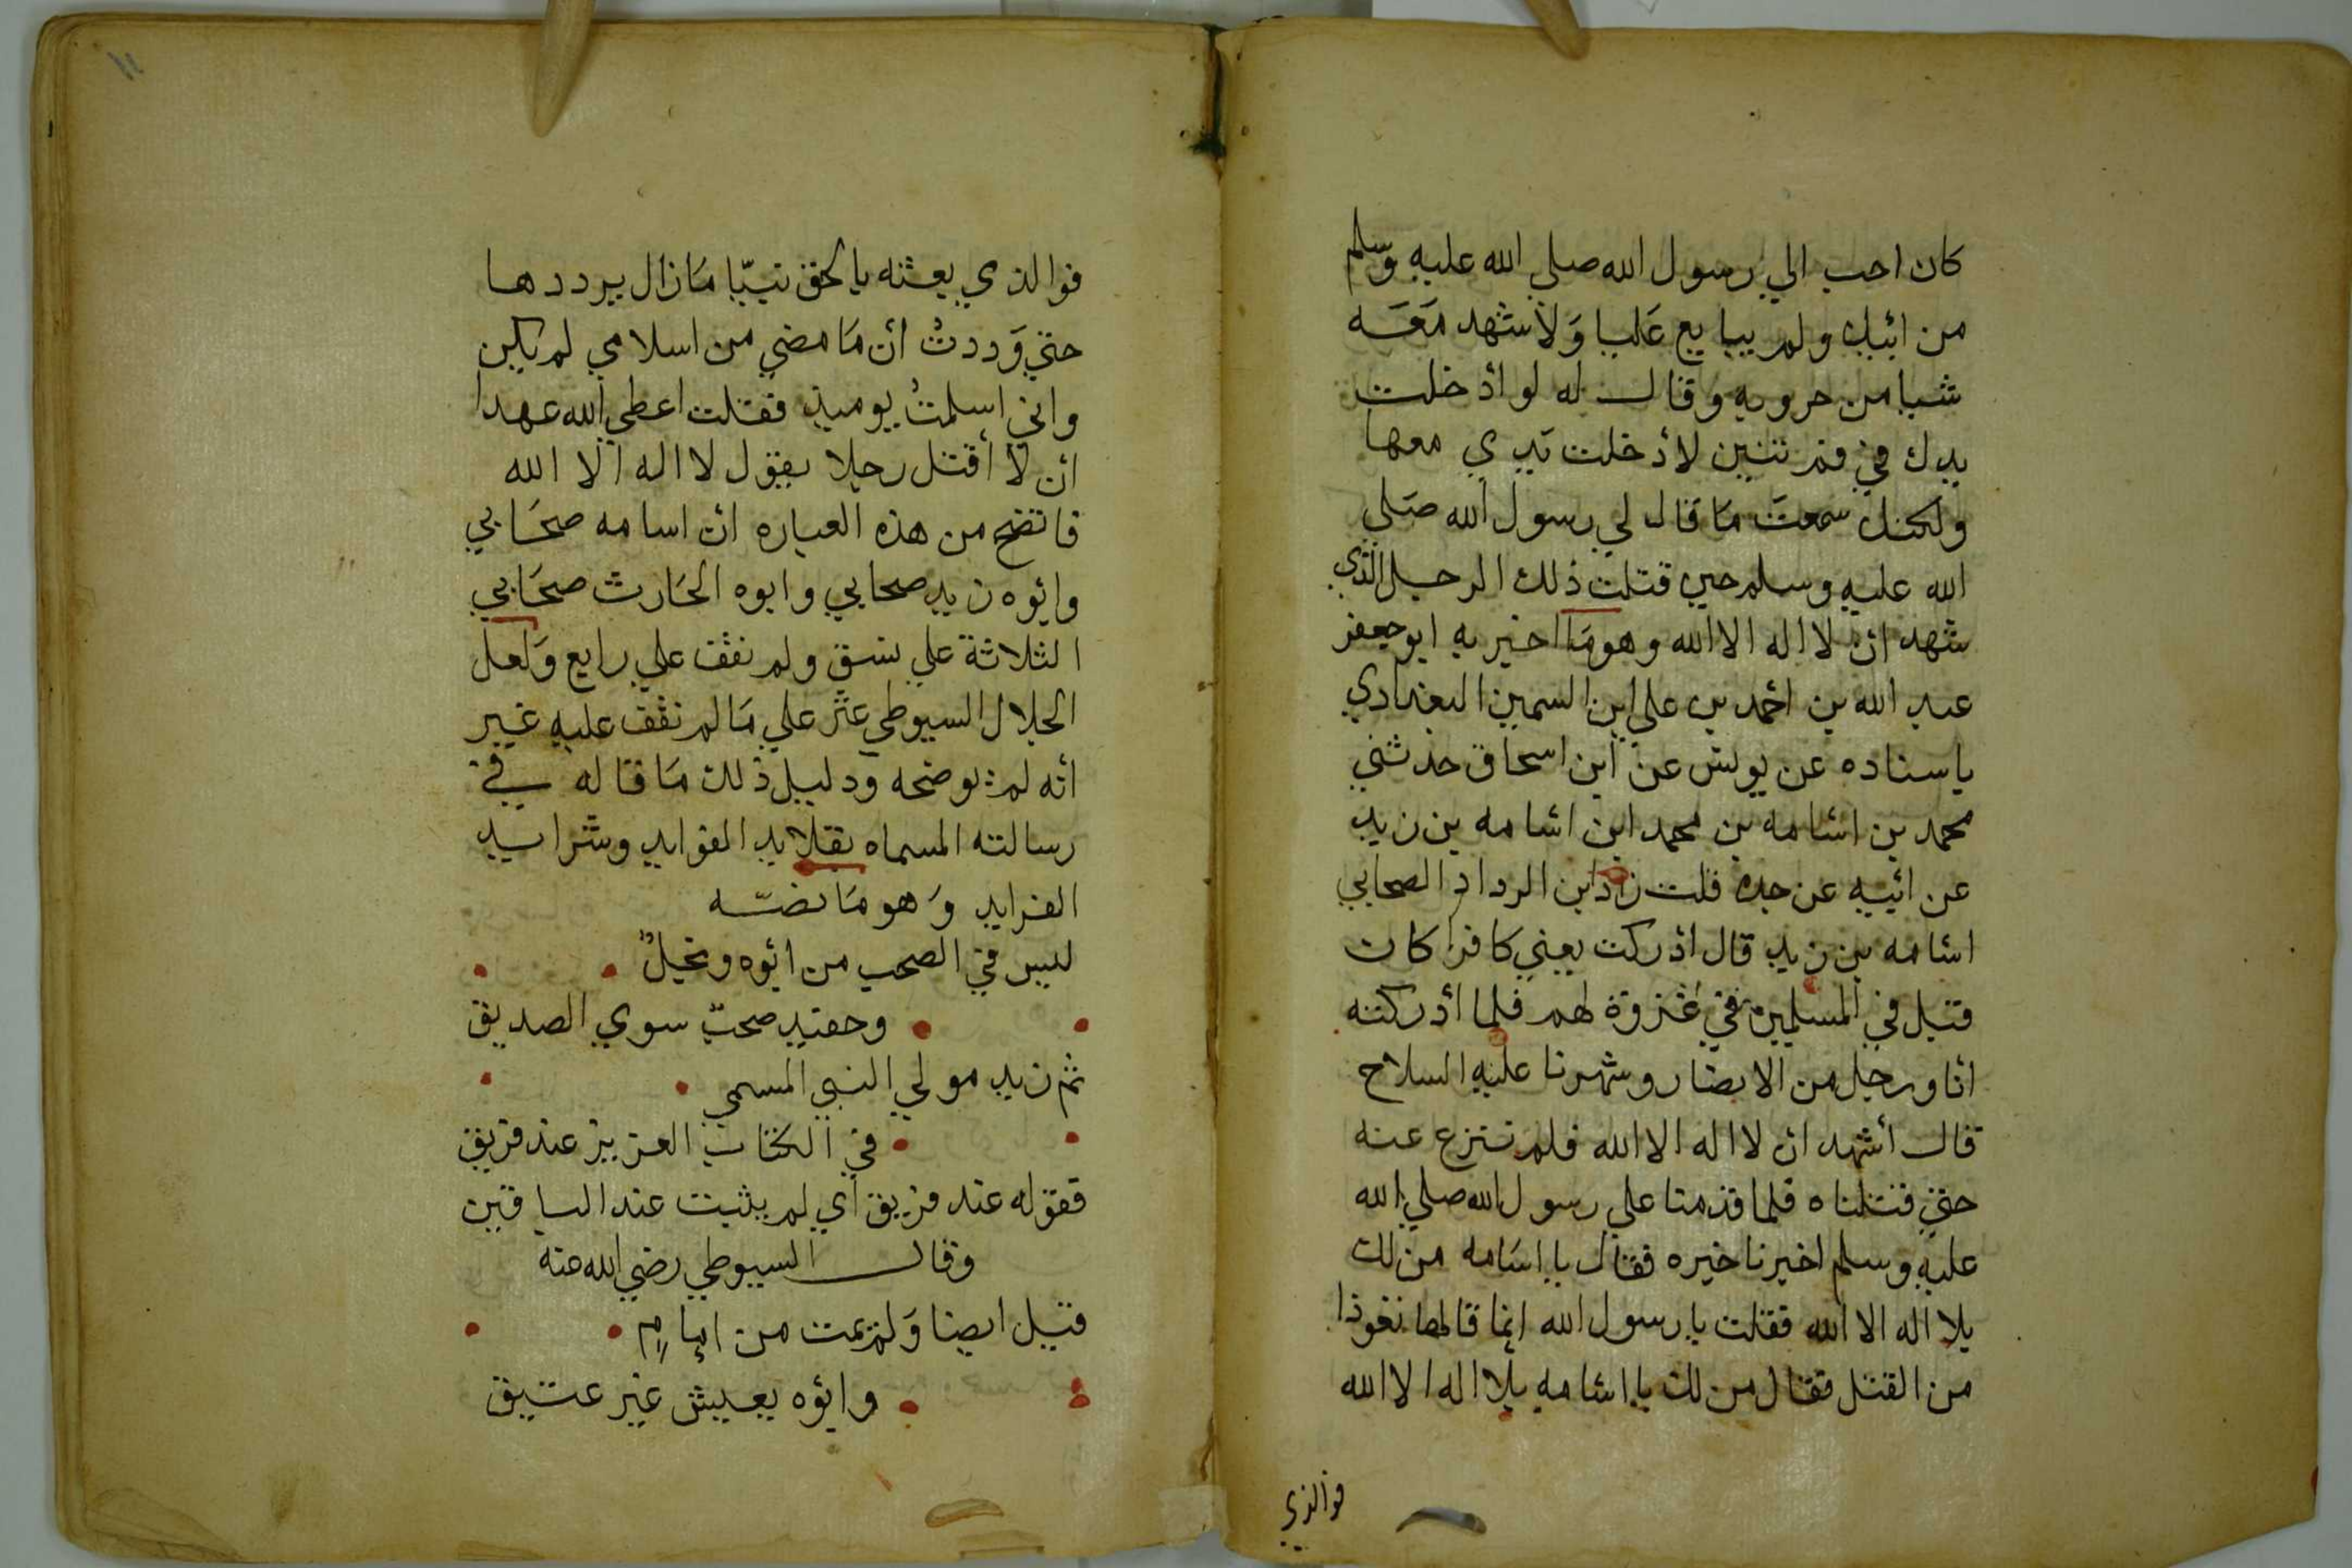 كان احب الي رسول الله صلي الله عليه وسلم
من ابيك ولم يبايع عليا ولا شهد معه
شيا من حروبه وقال له لو ادخلت
يدك في فم تنين لأدخلت يدي معها
ولكنك سمعت ما قال لي رسول الله صلي
الله عليه وسلم حين قتلت ذلك الرجل الذي
شهد ان لا اله الا الله وهو ما اخبر به ابو جعفر
عبد الله بن احمد بن علي ابن السمين البغدادي
باسناده عن يونس عن ابن اسحاق حدثني
محمد بن اسامه بن محمد ابن اسامه بن زيد
عن ابيه عن جده قلت زاد ابن الرداد الصحابي
اسامه بن زيد قال ادركت يعني كافرا كان
قتيل في المسلمين في غزوة لهم فلما أدركته
انا ورجل من الانصار وشهرنا عليه السلاح
قال أشهد ان لا اله الا الله فلم ننزع عنه
حتي قتلناه فلما قدمنا علي رسول الله صلي الله
عليه وسلم اخبرنا خبره فقال يا اسامه من لك
بلا اله الا الله فقلت يا رسول الله انما قالها تعوذا
من القتل فقال من لك يا اسامه بلا اله الا الله
فوالذي
١١
فوالذي بعثه بالحق نبيّا ما زال يرددها
حتي وَددتُ أن ما مضي من اسلامي لم يكن
واني اسلمتُ يوميذ فقلت اعطي الله عهدا
ان لا أقتل رجلا يقول لا اله الا الله
فاتضح من هذه العباره ان اسامه صحابي
وابوه زيد صحابي وابوه الحارث صحابي
الثلاثة علي نسق ولم نقف علي رابع ولعل
الجلال السيوطي عثر علي ما لم نقف عليه غير
أنه لم يوضحه ودليل ذلك ما قاله في
رسالته المسماه بقلايد الفوايد وشرايد
الفرايد وهو ما نصّه
ليس في الصحب من ابوه ونجلٌ
وحفيد صحبٌ سوي الصديق
ثم زيد مولي النبي المسمي
في الكتاب العزيز عند فريق
فقوله عند فريق أي لم يثبت عند الباقين
وقال السيوطي رضي الله عنه
قيل ايضا ولم يمت من إمامٍ
وابوه يعيش غير عتيق